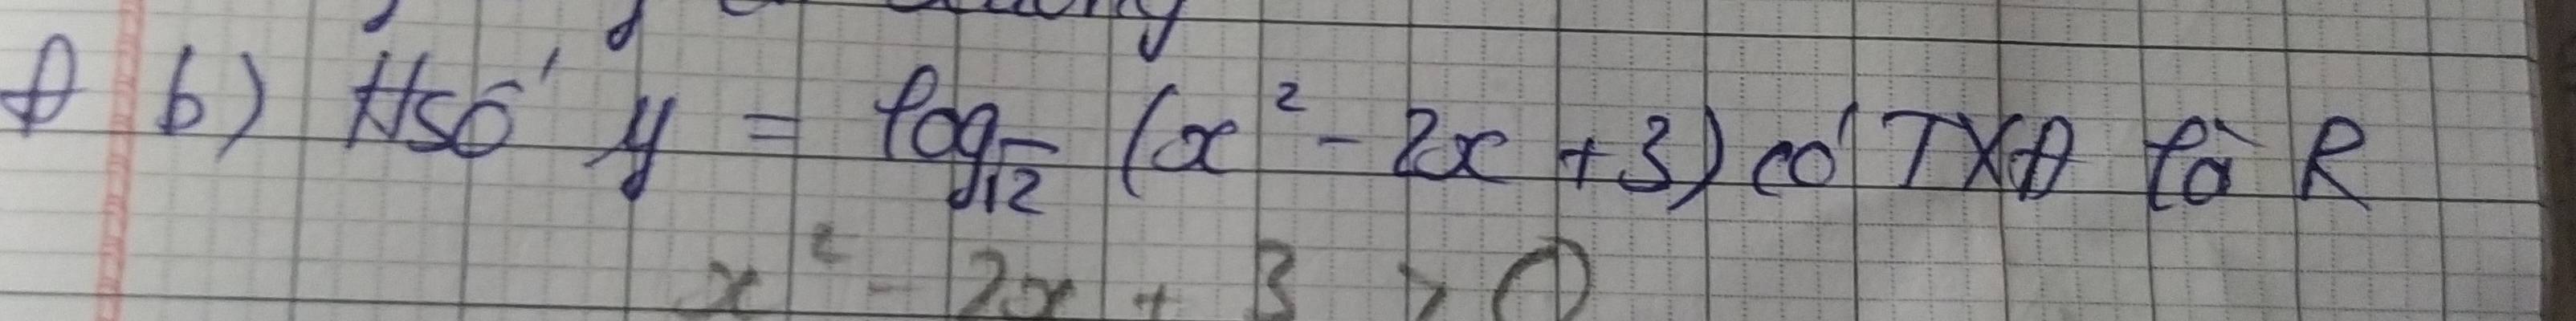 Đ b) Hsố y = log_√2 (x² - 2x + 3) có TXĐ là R
x² - 2x + 3 > 0